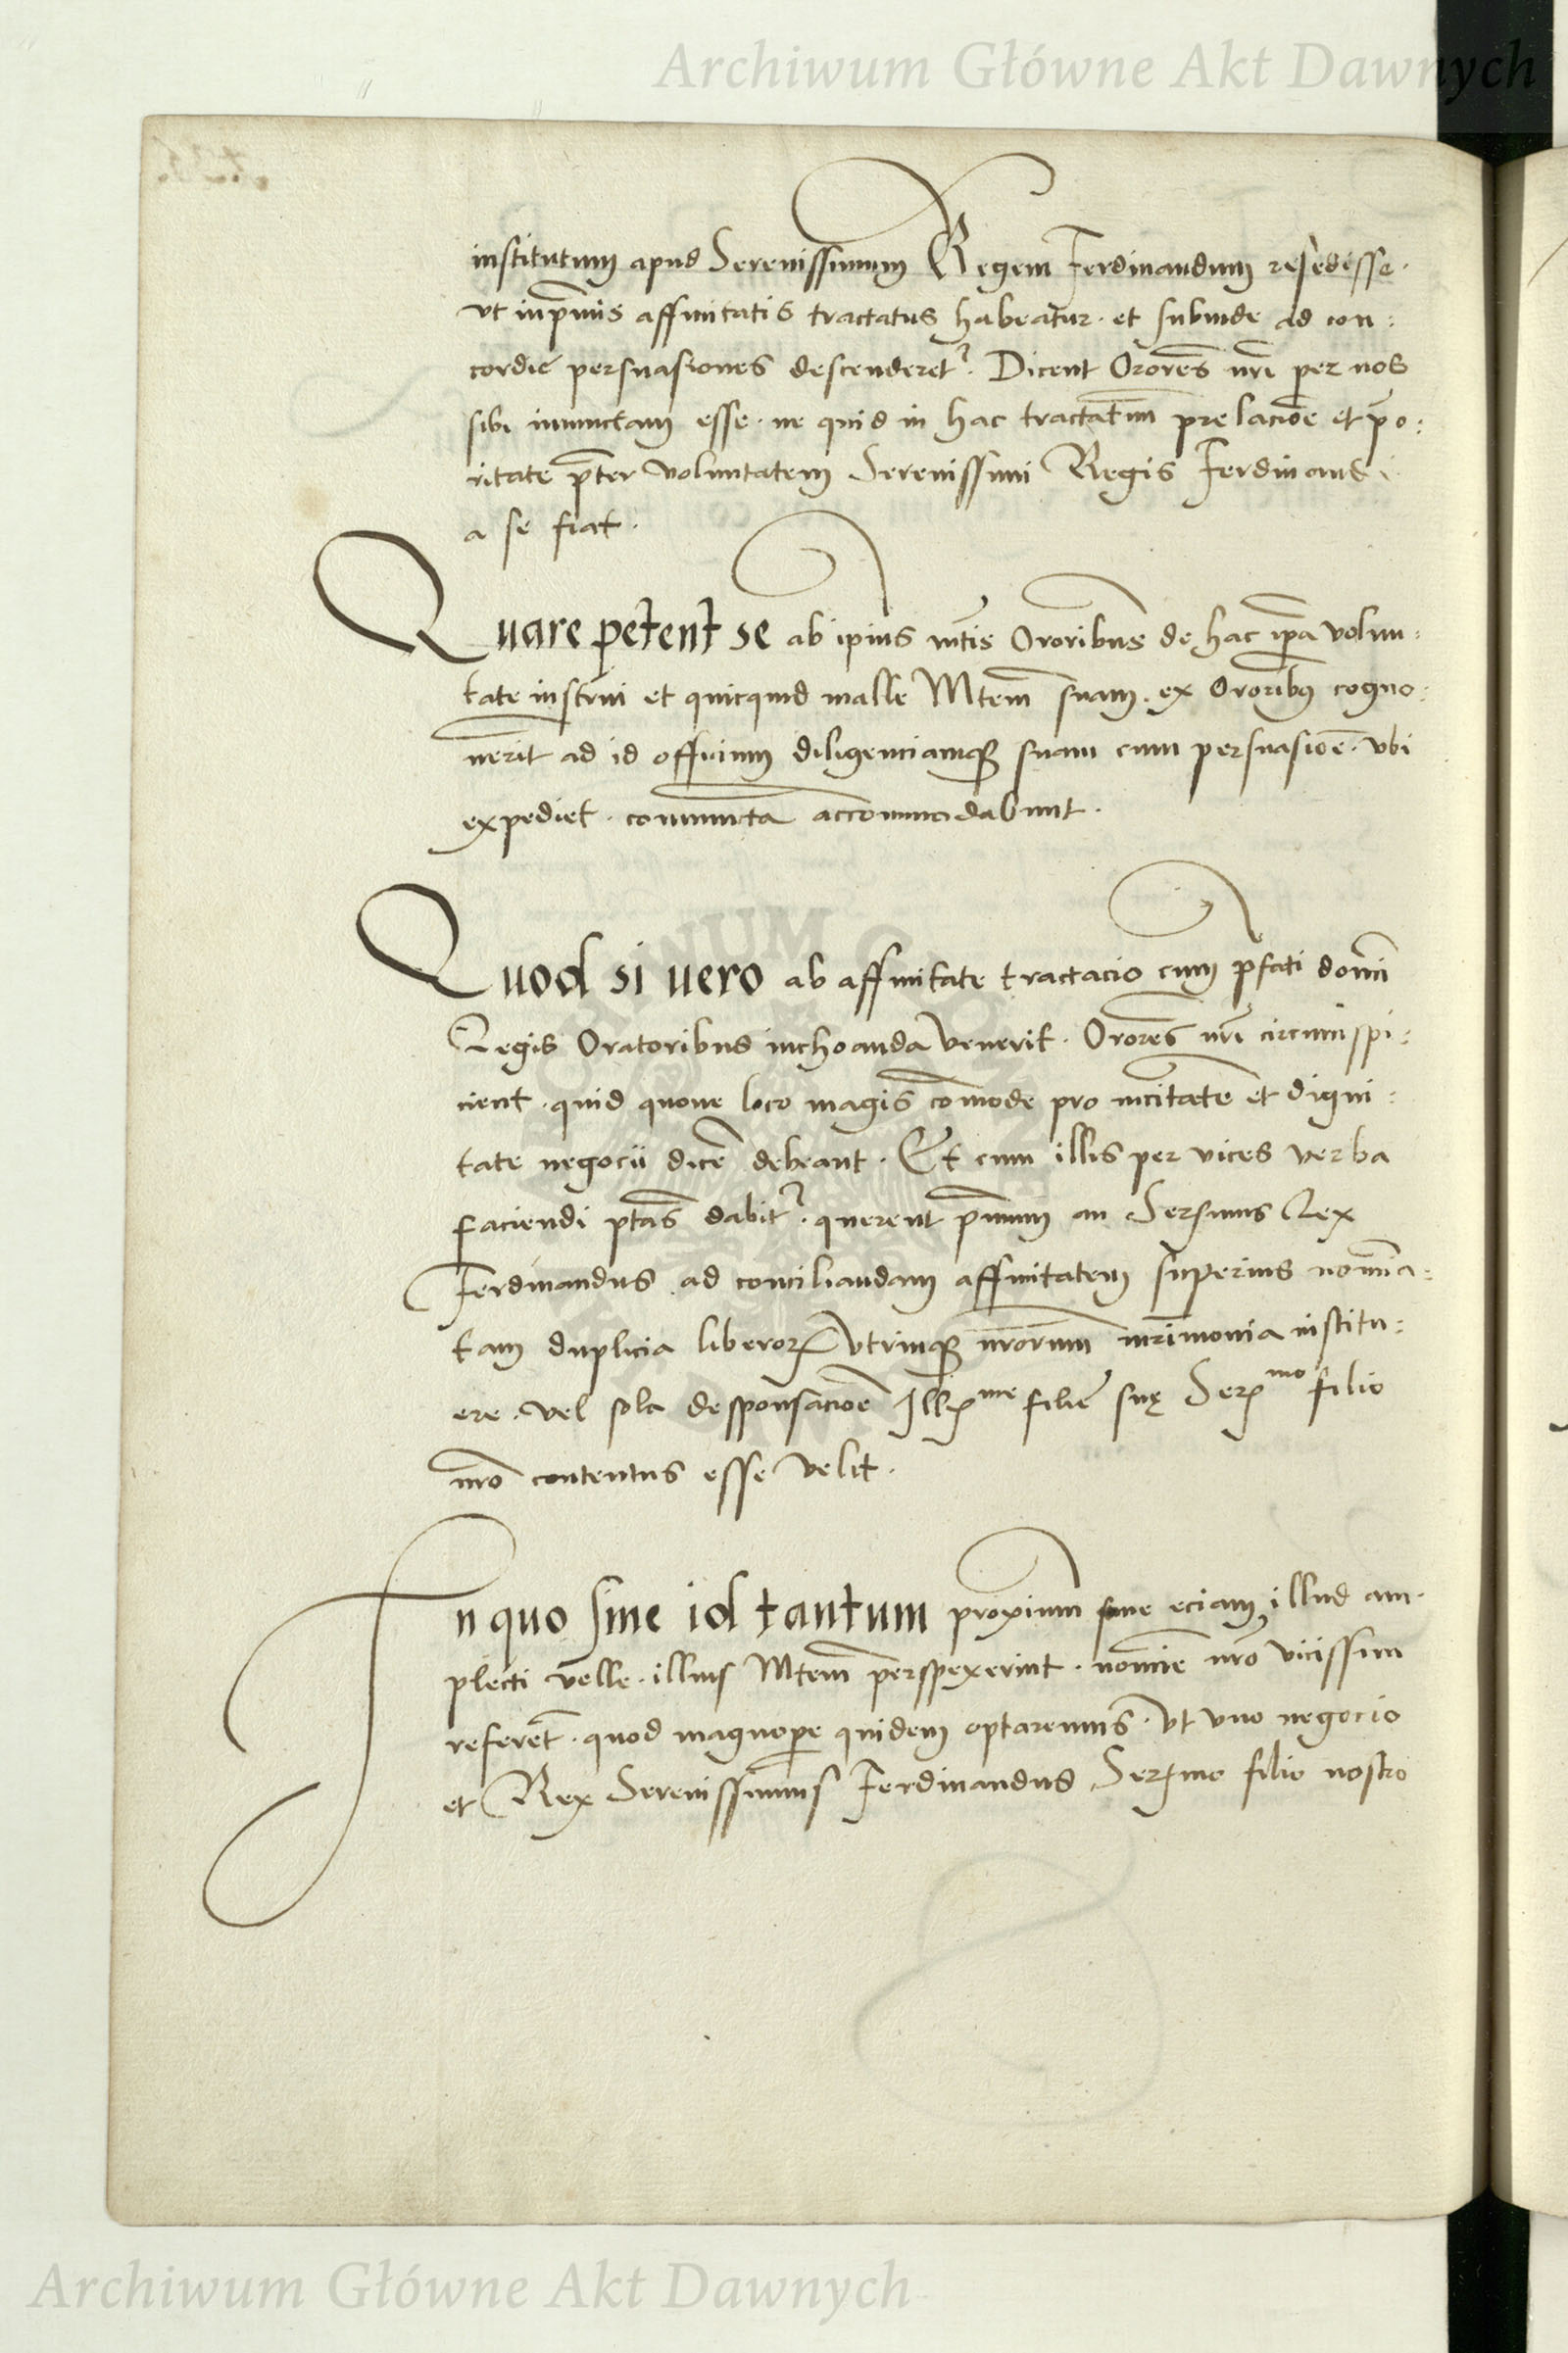 Archiwum Główne Akt Dawnych
institutum apud Serenissimum Regem Ferdinandum resedisse.
vt inp̄mis affinitatis tractatus habeatur. et subinde ad con:
cordie persuasiones descenderet᷑. Dicent Orores̄ nr̄i per nos
sibi iniunctam esse. ne quid in hac tractatūm prelacioē et p̄o:
ritate p̄ter voluntatem Serenissimi Regis Ferdinandi
a se fiat.
Quare petent se ab ip̄ius mt̄is Ororibus de hac ip̄a volun:
tate instrui et quicquid malle Mtem̄ suam. ex Ororibꝫ cogno:
uerit ad id officium diligenciamqꝫ suam cum persuasioē. vbi
expediet. coniuncta accommodabunt.
Quod si uero ab affinitate tractacio cum p̄fati domī
Regis Oratoribus inchoanda venerit. Orores̄ nr̄i circumspi:
cient. quid quoue loco magis com̄ode pro nc̄itate et digni:
tate negocii dicē debeant. Et cum illis per vices verba
faciendi ptās dabit᷑. querent p̄mum an Serᷤmus Rex
Ferdinandus ad conciliandam affinitatem superius nomīa:
tam duplicia liberoꝝ vtrinqꝫ nrorum mr̄imonia institu:
ere. vel sola desponsacioē Illꝫme filie suę Serꝫmo filio
nr̄o contentus esse velit.
In quo siue id tantum proximum siue eciam illud am.
plecti velle. illius Mtem̄ perspexerint. nomīe nr̄o vicissim
referēt. quod magnope quidem optaremus. vt vno negocio
et Rex Serenissimus Ferdinandus Serꝫmo filio nostro
Archiwum Główne Akt Dawnych